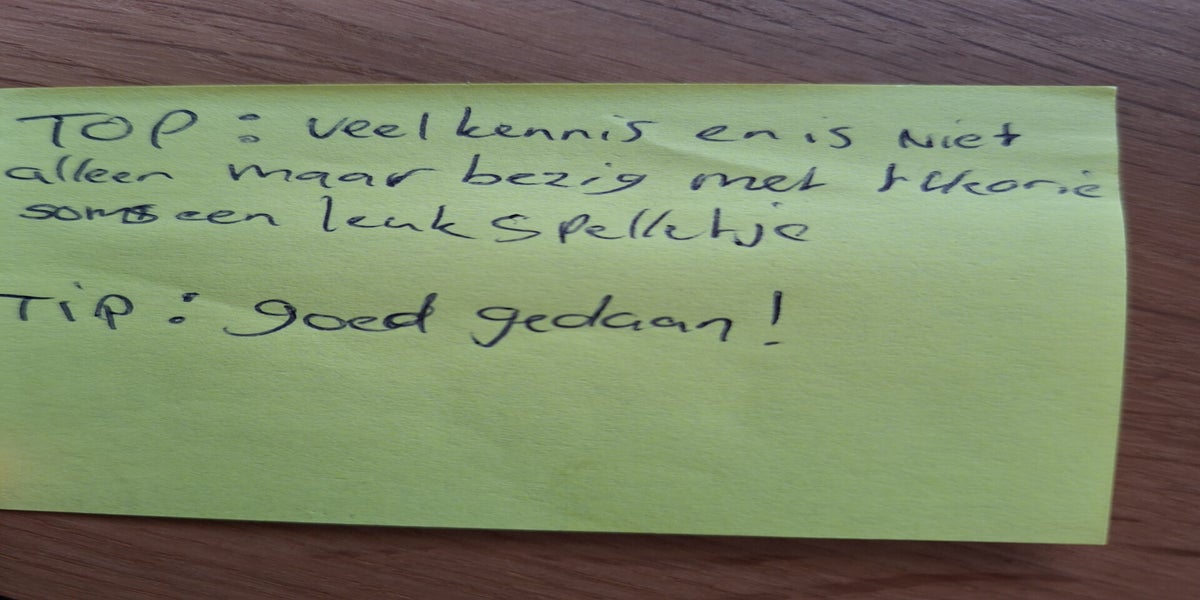 TOP : veel kennis en is Niet
alleen maar bezig met theorie
soms een leuk spelletje
TiP : goed gedaan!